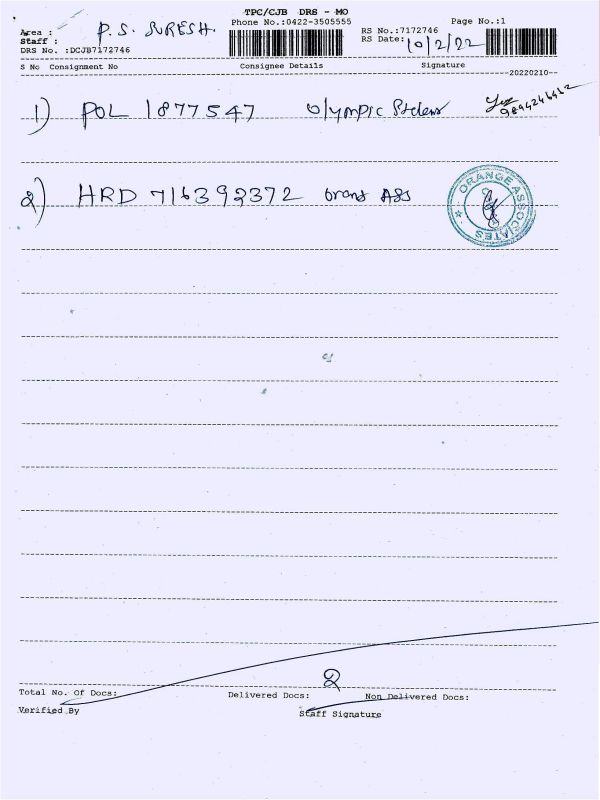 TPC/CJB DRS - MO
Phone No.:0422-3505555
Page No.:1
Area :
P. S. SURESH.
Staff :
DRS No. :DCJB7172746
RS No.:7172746
RS Date: 10/2/22
S No Consignment No Consignee Details Signature
--20220210--
1) POL 1877547 Olympic
2) HRD 716392372 Ass
ORANGE ASSOCIATES
2
Total No. Of Docs: Delivered Docs: Non Delivered Docs:
Verified By Staff Signature